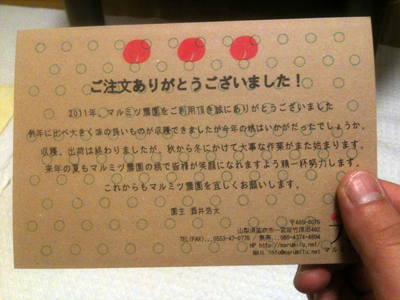 ご注文ありがとうございました！
2011年、マルミツ農園をご利用頂き誠にありがとうございました
例年に比べ大きく味の良いものが収穫できましたが今年の桃はいかがだったでしょうか。
収穫、出荷は終わりましたが、秋から冬にかけて大事な作業がまた始まります。
来年の夏もマルミツ農園の桃で皆様が笑顔になれますよう精一杯努力します。
これからもマルミツ農園を宜しくお願いします。
園主
TEL(FAX)...0553-47-0776 / 携帯...080-4374-4694
HP http://marumitu.net/
マル